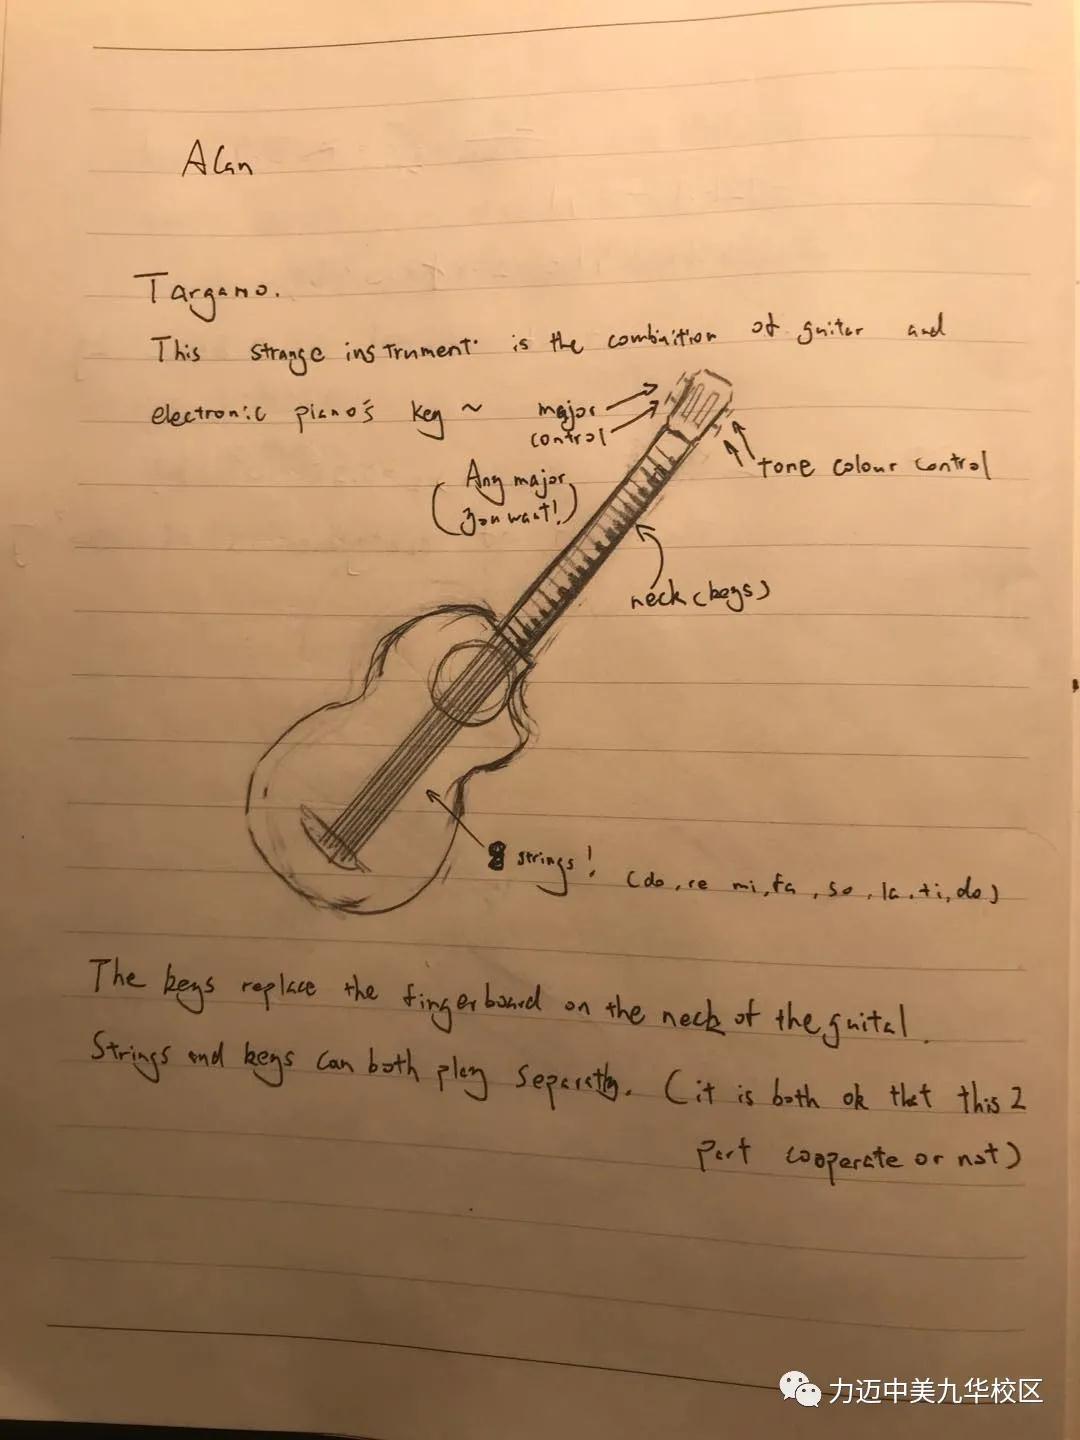 Alan
Targano.
This strange instrument is the combnition of guitar and
electronic piano's key ~
major
control
(Any major
you want!)
tone colour control
neck (keys)
8 strings! (do, re mi, fa, so, la, ti, do)
The keys replace the fingerboard on the neck of the guital.
Strings and keys can both play separatly. (it is both ok that this 2
part cooperate or not)
力迈中美九华校区